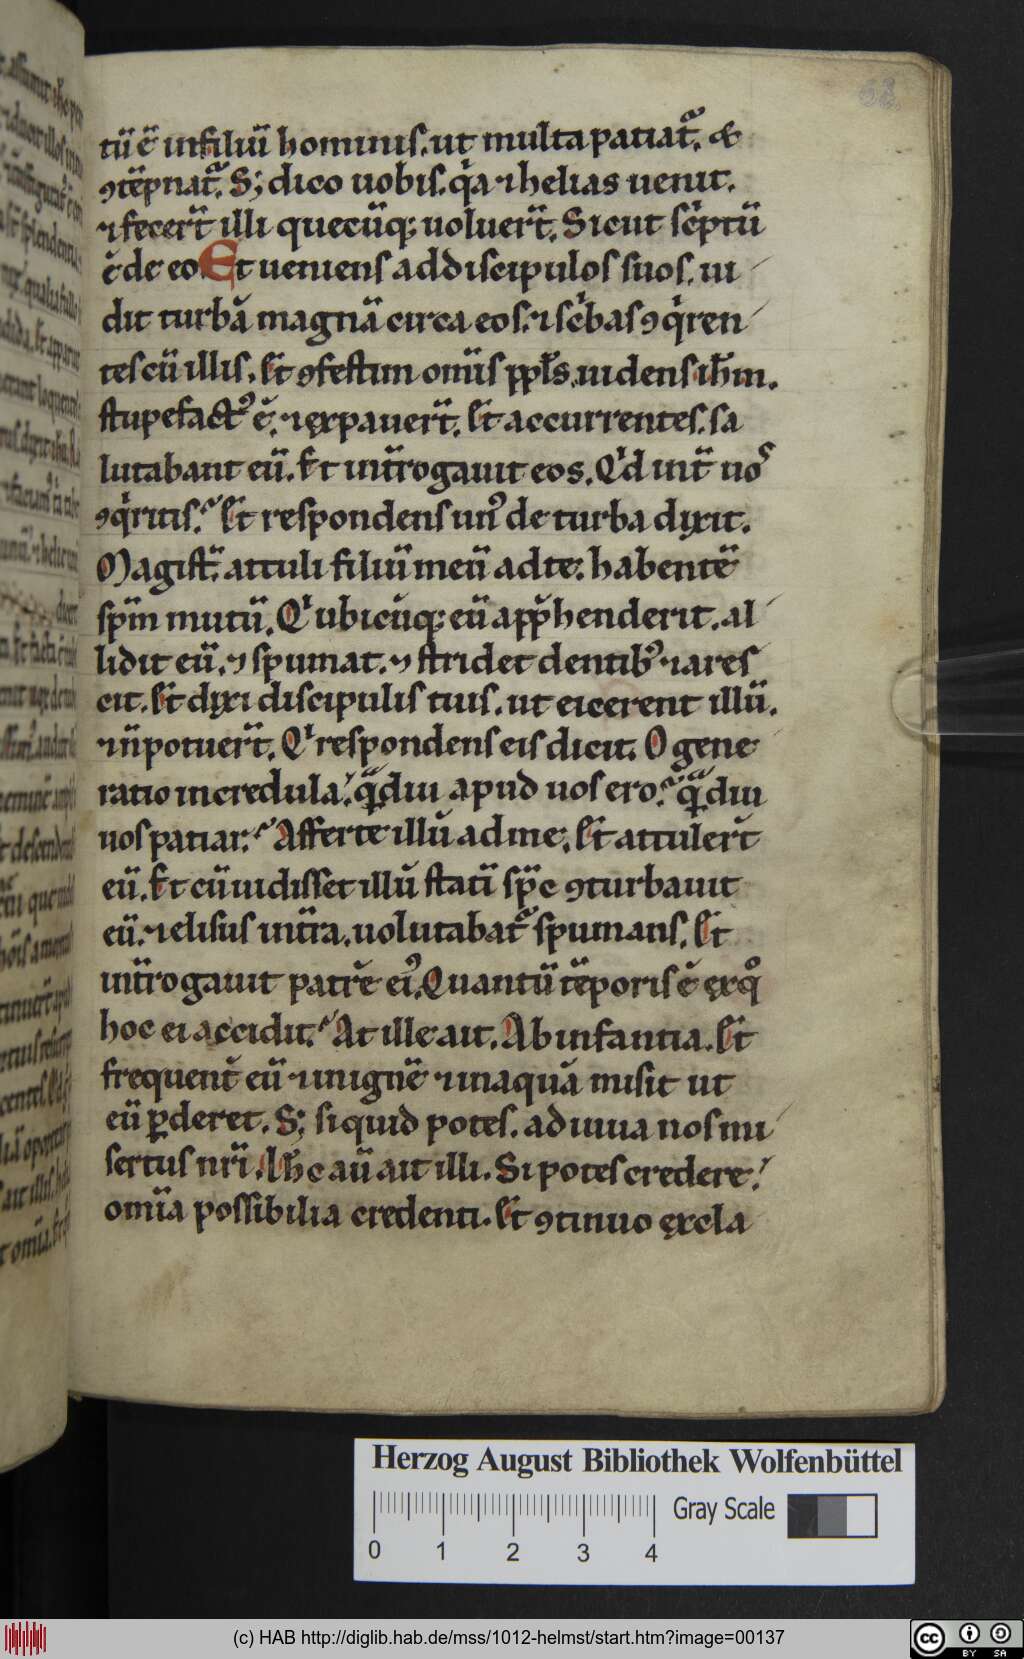 68
tū ē in filiū hominis. ut multa patiat᷑. &
ꝯtēpnat᷑. S; dico uobis. qͥa ⁊ helias uenit.
⁊ fecer̄t illi quecūq; uoluer̄t. Sicut sc̄ptū
ē de eo. Et ueniens ad discipulos suos. ui
dit turbā magnā circa eos. ⁊ scͥbas ꝯqͥren
tes cū illis. Et ꝯfestim om̄is ppl̄s uidens ih̄m.
stupefactꝰ ē. ⁊ expauer̄t. Et accurrentes. sa
lutabant eū. Et int̄rogauit eos. Qͥd int̄ uoˢ
ꝯqͥritis. Et respondens unꝰ de turba dixit.
Magist̄. attuli filiū meū ad te. habentē
sp̄m mutū. Qͥ ubicūq; eū app̄henderit. al
lidit eū. ⁊ spumat. ⁊ stridet dentibꝰ. ⁊ ares
cit. Et dixi discipulis tuis. ut eicerent illū.
⁊ n̄ potuer̄t. Qͥ respondens eis dicit. O gene
ratio incredula. qᷓmdiu apud uos ero. qᷓmdiu
uos patiar. Afferte illū ad me. Et attuler̄t
eū. Et cū uidisset illū statī sp̄c ꝯturbauit
eū. ⁊ elisus int̄ra. uolutabat᷑ spumans. Et
int̄rogauit patrē eiꝰ. Quantū tēporis ē ex qͦ
hoc ei accidit. At ille ait. Ab infantia. Et
frequent̄ eū ⁊ in ignē ⁊ in aquā misit ut
eū ꝑderet. S; si quid potes. adiuua nos mi
sertus nr̄i. Ih̄c aū ait illi. Si potes credere.
om̄ia possibilia credenti. Et ꝯtinuo excla
Herzog August Bibliothek Wolfenbüttel
Gray Scale
0 1 2 3 4
(c) HAB http://diglib.hab.de/mss/1012-helmst/start.htm?image=00137
cc BY SA